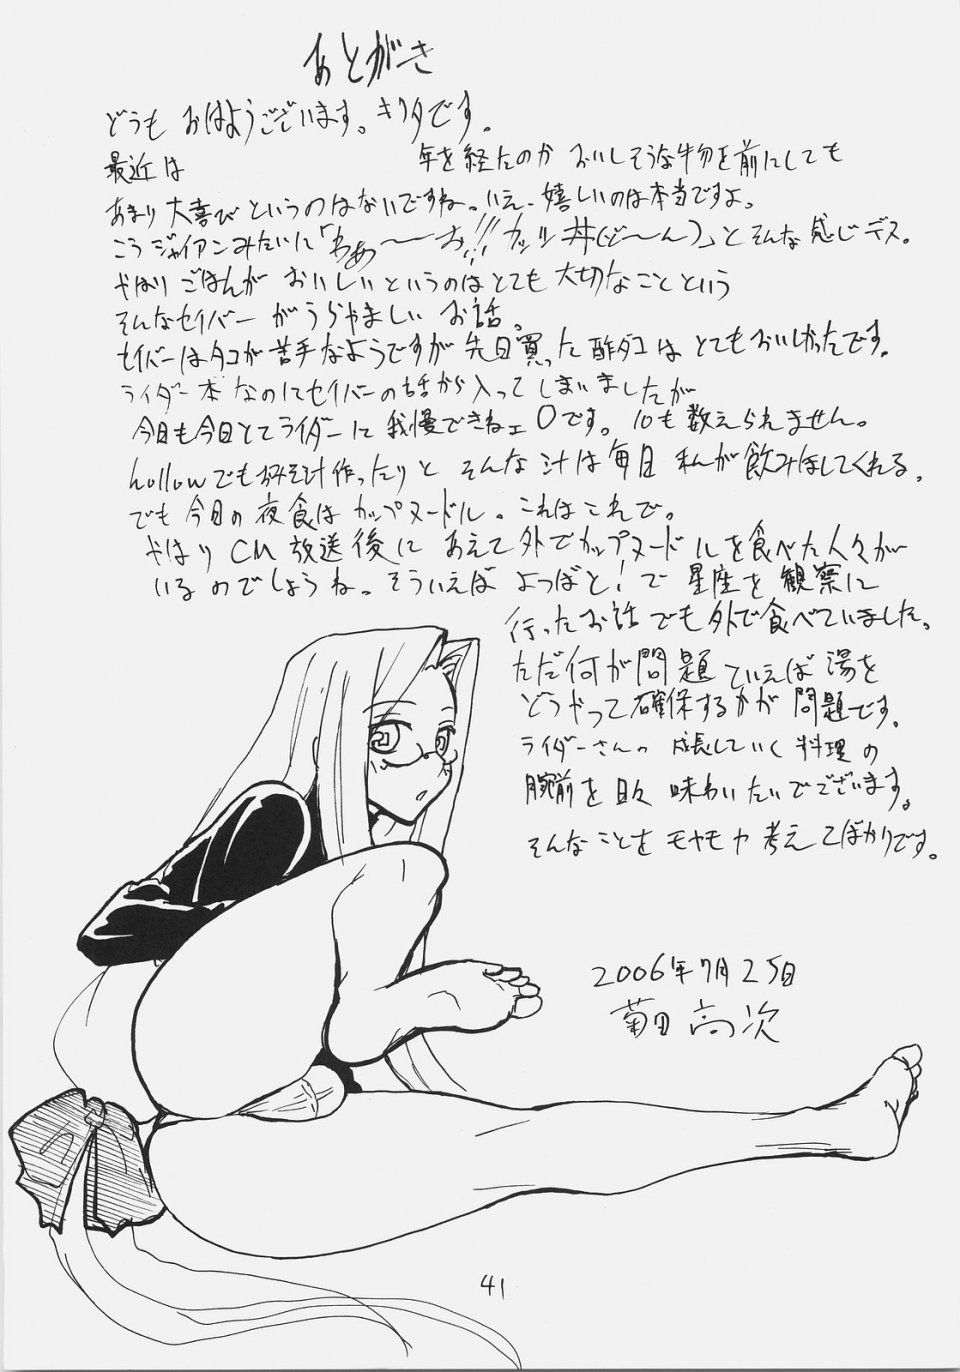 あとがき
どうも おはようございます。キクタです。
最近は 年を経たのか おいしそうな物を前にしても
あまり大喜びというのはないですね。いえ、嬉しいのは本当ですよ。
こうジャイアンみたいに「わぁ〜〜お!!!カツ丼(ど〜ん)」とそんな感じデス。
やはりごはんが おいしいというのはとても大切なことという
そんなセイバーがうらやましいお話。
セイバーはタコが苦手なようですが先日買った酢ダコはとてもおいしかったです。
ライダー本なのにセイバーの話から入ってしまいましたが
今日も今日とてライダーに我慢できねェ0です。10も数えられません。
hollowでもおみそ汁作ったりと そんな汁は毎日 私が飲みほしてくれる。
でも今日の夜食はカップヌードル。これはこれで。
やはりCM放送後に あえて外でカップヌードルを食べた人々が
いるのでしょうね。そういえば よつばと!で星座を観察に
行ったお話でも外で食べていました。
ただ何が問題ていえば湯を
どうやって確保するかが問題です。
ライダーさんの成長していく料理の
腕前を日々味わいたいでございます。
そんなことをモヤモヤ考えてばかりです。
2006年7月25日
菊田高次
41